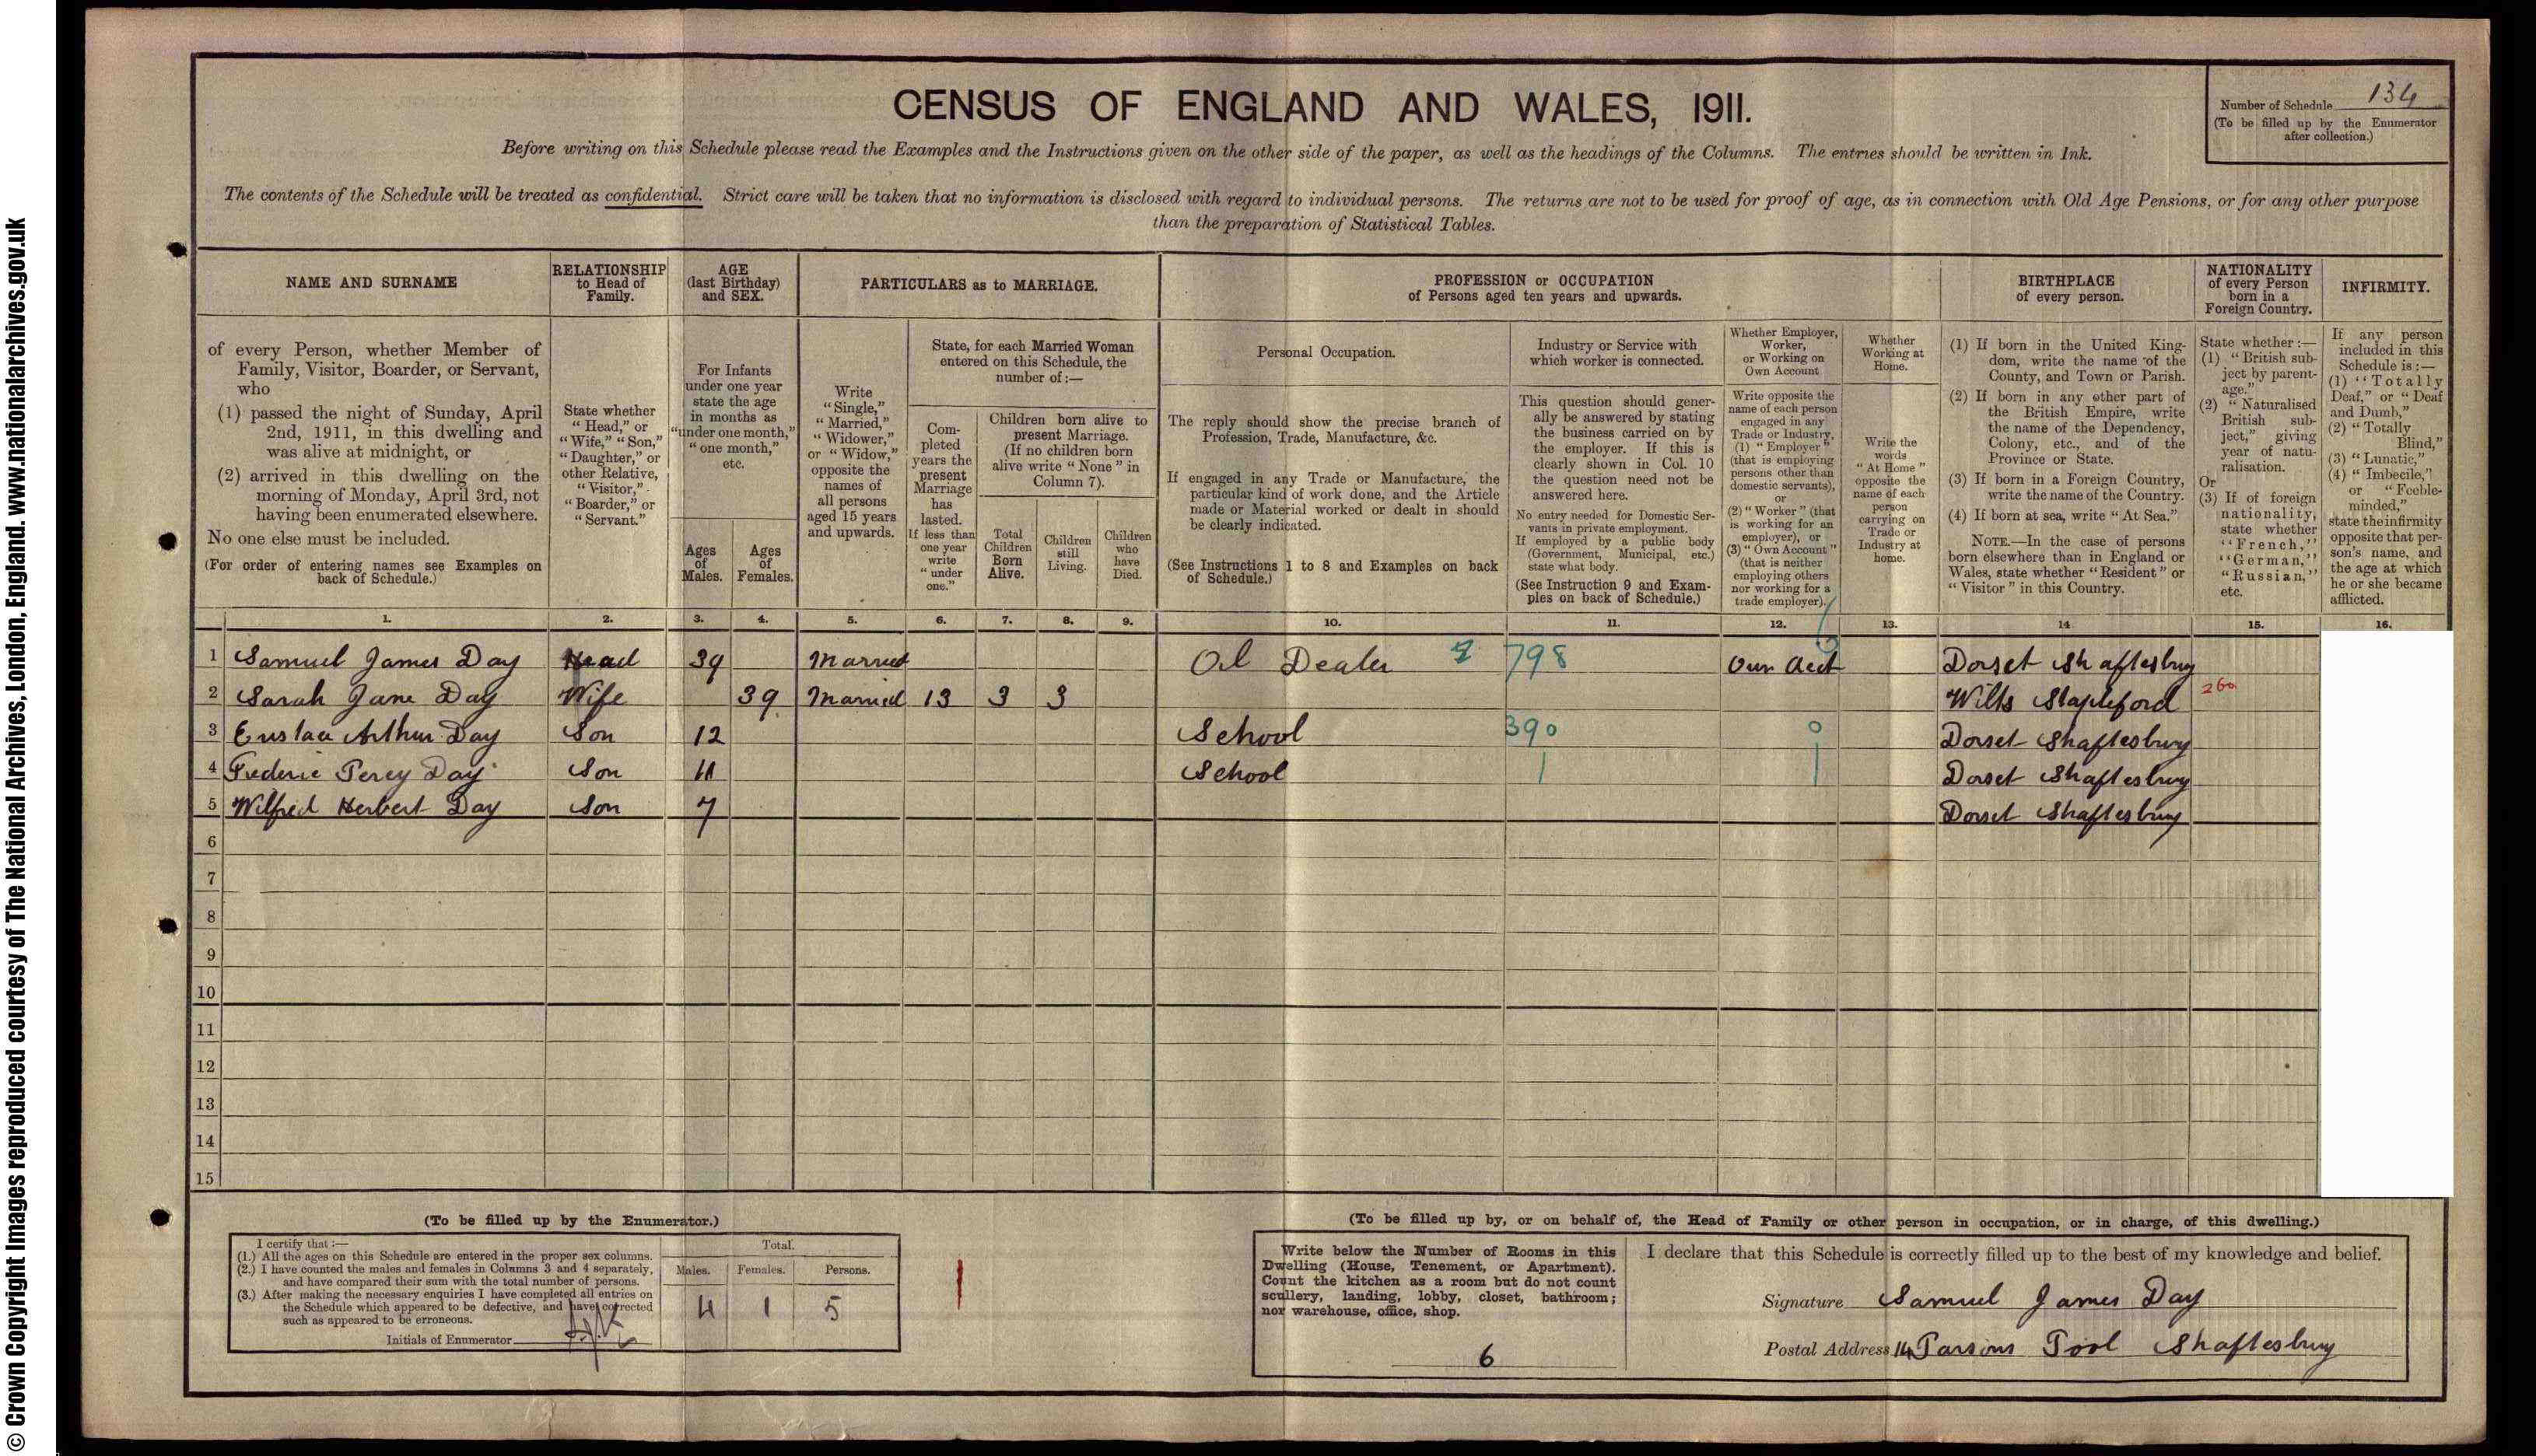 © Crown Copyright Images reproduced courtesy of The National Archives, London, England. www.nationalarchives.gov.uk
CENSUS OF ENGLAND AND WALES, 1911.
Number of Schedule 134
(To be filled up by the Enumerator
after collection.)
Before writing on this Schedule please read the Examples and the Instructions given on the other side of the paper, as well as the headings of the Columns. The entries should be written in Ink.
The contents of the Schedule will be treated as confidential. Strict care will be taken that no information is disclosed with regard to individual persons. The returns are not to be used for proof of age, as in connection with Old Age Pensions, or for any other purpose
than the preparation of Statistical Tables.
NAME AND SURNAME
of every Person, whether Member of
Family, Visitor, Boarder, or Servant,
who
(1) passed the night of Sunday, April
2nd, 1911, in this dwelling and
was alive at midnight, or
(2) arrived in this dwelling on the
morning of Monday, April 3rd, not
having been enumerated elsewhere.
No one else must be included.
(For order of entering names see Examples on
back of Schedule.)
RELATIONSHIP
to Head of
Family.
State whether
"Head," or
"Wife," "Son,"
"Daughter," or
other Relative,
"Visitor,"
"Boarder," or
"Servant."
AGE
(last Birthday)
and SEX.
For Infants
under one year
state the age
in months as
"under one month,"
"one month,"
etc.
Ages
of
Males.
Ages
of
Females.
PARTICULARS as to MARRIAGE.
Write
"Single,"
"Married,"
"Widower,"
or "Widow,"
opposite the
names of
all persons
aged 15 years
and upwards.
State, for each Married Woman
entered on this Schedule, the
number of:—
Com-
pleted
years the
present
Marriage
has
lasted.
If less than
one year
write
"under
one."
Children born alive to
present Marriage.
(If no children born
alive write "None" in
Column 7).
Total
Children
Born
Alive.
Children
still
Living.
Children
who
have
Died.
PROFESSION or OCCUPATION
of Persons aged ten years and upwards.
Personal Occupation.
The reply should show the precise branch of
Profession, Trade, Manufacture, &c.
If engaged in any Trade or Manufacture, the
particular kind of work done, and the Article
made or Material worked or dealt in should
be clearly indicated.
(See Instructions 1 to 8 and Examples on back
of Schedule.)
Industry or Service with
which worker is connected.
This question should gener-
ally be answered by stating
the business carried on by
the employer. If this is
clearly shown in Col. 10
the question need not be
answered here.
No entry needed for Domestic Ser-
vants in private employment.
If employed by a public body
(Government, Municipal, etc.)
state what body.
(See Instruction 9 and Exam-
ples on back of Schedule.)
Whether Employer,
Worker,
or Working on
Own Account
Write opposite the
name of each person
engaged in any
Trade or Industry,
(1) "Employer"
(that is employing
persons other than
domestic servants),
or
(2) "Worker" (that
is working for an
employer), or
(3) "Own Account"
(that is neither
employing others
nor working for a
trade employer).
Whether
Working at
Home.
Write the
words
"At Home"
opposite the
name of each
person
carrying on
Trade or
Industry at
home.
BIRTHPLACE
of every person.
(1) If born in the United King-
dom, write the name of the
County, and Town or Parish.
(2) If born in any other part of
the British Empire, write
the name of the Dependency,
Colony, etc., and of the
Province or State.
(3) If born in a Foreign Country,
write the name of the Country.
(4) If born at sea, write "At Sea."
NOTE.—In the case of persons
born elsewhere than in England or
Wales, state whether "Resident" or
"Visitor" in this Country.
NATIONALITY
of every Person
born in a
Foreign Country.
State whether:—
(1) "British sub-
ject by parent-
age."
(2) "Naturalised
British sub-
ject," giving
year of natu-
ralisation.
Or
(3) If of foreign
nationality,
state whether
"French,"
"German,"
"Russian,"
etc.
INFIRMITY.
If any person
included in this
Schedule is:—
(1) "Totally
Deaf," or "Deaf
and Dumb,"
(2) "Totally
Blind,"
(3) "Lunatic,"
(4) "Imbecile,"
or "Feeble-
minded,"
state the infirmity
opposite that per-
son's name, and
the age at which
he or she became
afflicted.
1. 2. 3. 4. 5. 6. 7. 8. 9. 10. 11. 12. 13. 14 15. 16.
1 Samuel James Day Head 39 Married Oil Dealer 798 Own Acct Dorset Shaftesbury
2 Sarah Jane Day Wife 39 Married 13 3 3 Wilts Stapleford 260
3 Eustace Arthur Day Son 12 School 390 0 Dorset Shaftesbury
4 Frederic Percy Day Son 11 School Dorset Shaftesbury
5 Wilfred Herbert Day Son 7 Dorset Shaftesbury
6
7
8
9
10
11
12
13
14
15
(To be filled up by the Enumerator.)
I certify that:—
(1.) All the ages on this Schedule are entered in the proper sex columns.
(2.) I have counted the males and females in Columns 3 and 4 separately,
and have compared their sum with the total number of persons.
(3.) After making the necessary enquiries I have completed all entries on
the Schedule which appeared to be defective, and have corrected
such as appeared to be erroneous.
Initials of Enumerator
Total.
Males. Females. Persons.
4 1 5
(To be filled up by, or on behalf of, the Head of Family or other person in occupation, or in charge, of this dwelling.)
Write below the Number of Rooms in this
Dwelling (House, Tenement, or Apartment).
Count the kitchen as a room but do not count
scullery, landing, lobby, closet, bathroom;
nor warehouse, office, shop.
6
I declare that this Schedule is correctly filled up to the best of my knowledge and belief.
Signature Samuel James Day
Postal Address 14 Parsons Pool Shaftesbury